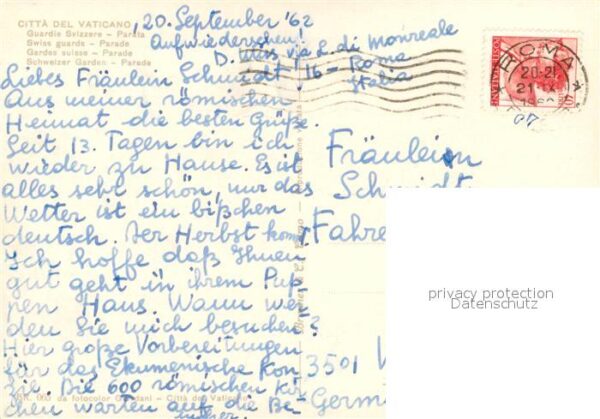 CITTÀ DEL VATICANO
Guardie Svizzere - Parata
Swiss guards - Parade
Gardes suisses - Parade
Schweizer Garden - Parade
20. September '62
Aufwiedersehen!
D. via L. di Monreale
16 - Roma
Italia
Liebes Fräulein Schmidt
Aus meiner römischen
Heimat die besten Grüße.
Seit 13. Tagen bin ich
wieder zu Hause. Es ist
alles sehr schön, nur das
Wetter ist ein bißchen
deutsch. Der Herbst kom
Ich hoffe daß Ihnen
gut geht in ihrem Pup
pen Haus. Wann wer
den Sie mich besuchen?
Hier große Vorbereitungen
für das Ekumenische Kon
zil. Die 600 römischen Kir
chen warten auf die Be
sucher.
ROMA
20-21
21 IX
Fräulein
Schmidt
Fahre
3501
Germ
privacy protection
Datenschutz
da fotocolor - Città del Vatic